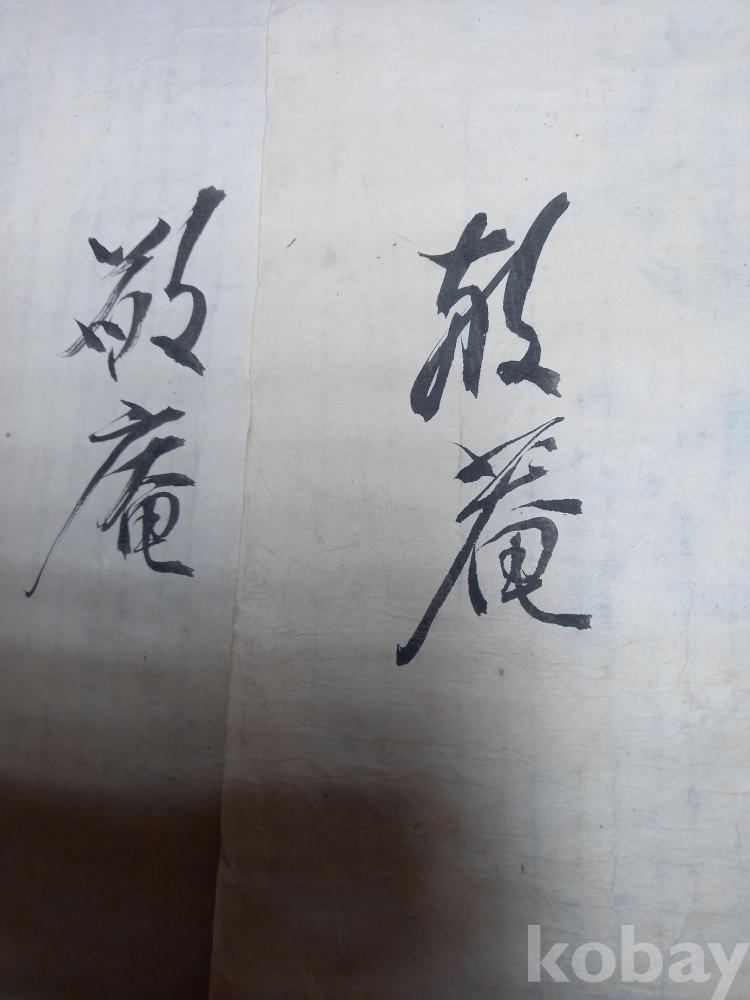 敬菴
敬庵
kobay